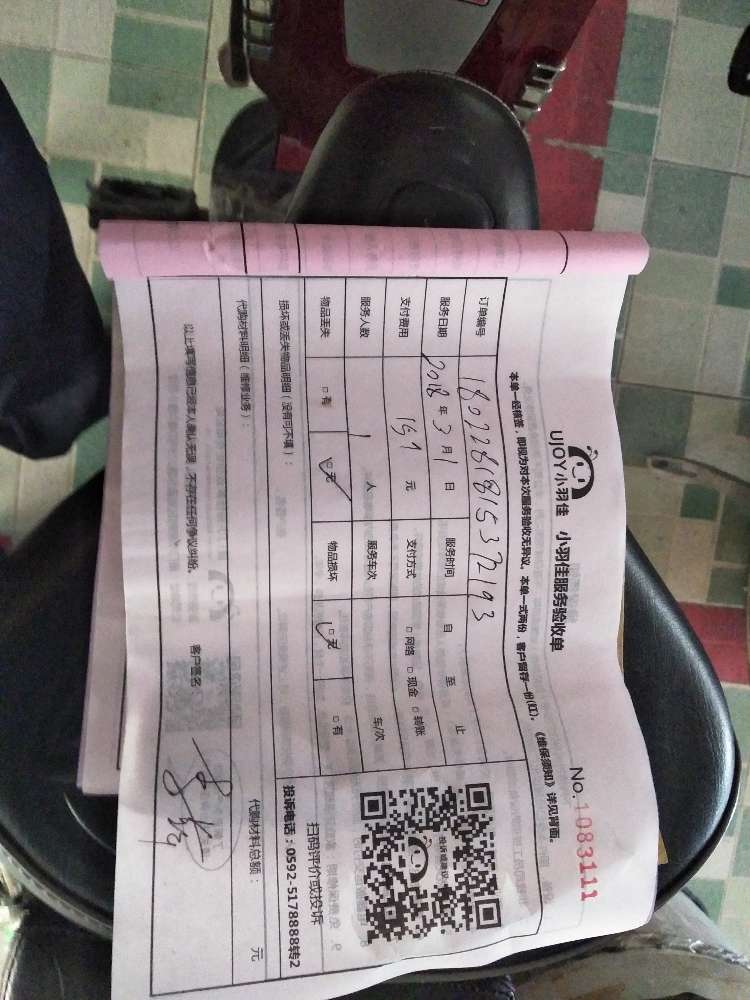 UJOY小羽佳 小羽佳服务验收单
No.1083111
本单一经核签，即视为对本次服务验收无异议。本单一式两份，客户留存一份(红)。《维保须知》详见背面。
订单编号
服务日期 2018 年 3 月 1 日 服务时间 自 至 止
支付费用 元 支付方式 □网络 □现金 □转账
服务人数 1 人 服务车次 车/次
物品丢失 □有 □无 物品损坏 □无 □有
损坏或丢失物品明细（没有可不填）：
投诉与建议
扫码评价或投诉
投诉电话：0592-5178888转2
代购材料明细（维修业务）： 代购材料总额： 元
以上填写信息已经本人确认无误，不存在任何争议纠纷。 客户签名